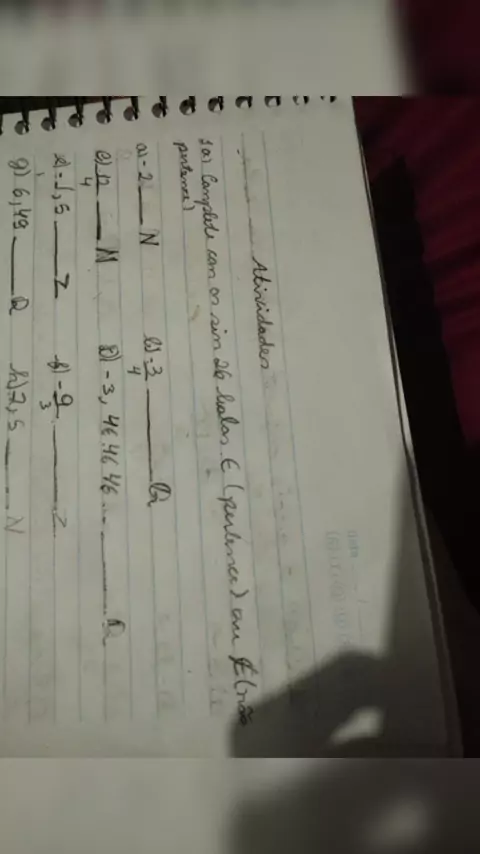 Atividades
1a) Complete com os sin 26 bolos ∈ (pertence) ou ∉ (não
pertence)
a) -2 ___ N b) -3/4 ___ Q
c) 12/4 ___ N d) -3,464646... ___ Q
e) -1,5 ___ Z f) -9/3 ___ Z
g) 6,49 ___ Q h) 7,5 ___ N